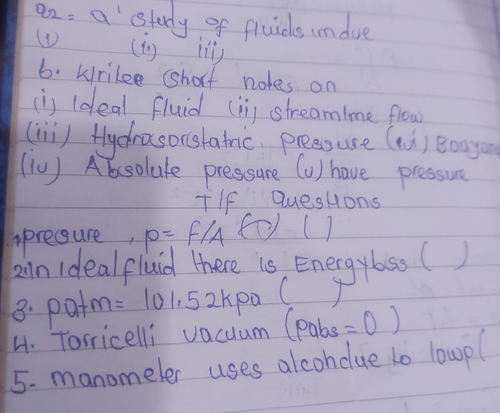 Q2 = a' study of fluids imdue
(i) (ii) iii)
b. Wrilee short notes on
(i) Ideal fluid (ii) streamlme flow
(iii) Pressure (vi)
(iv) Absolute pressure (v) have pressure
T/F Questions
1. presure, p= F/A (T) ( )
2. In Ideal fluid there is Energyloss ( )
3. patm= 101.52kpa ( )
4. Torricelli vacuum (pabs=0)
5. manometer uses alcohdue to lowp (